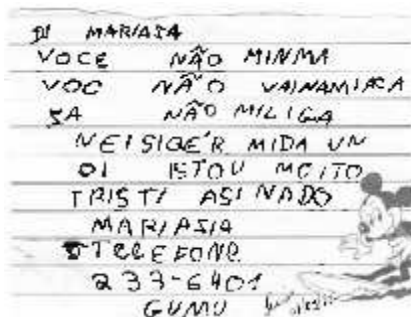 DI MARIAZIA
VOCE NÃO MINMA
VOC NÃO VAINAMIACA
SA NÃO MILIGA
NEISIQE'R MIDA UN
OI ISTOU MOITO
TRISTI ASINADO
MARIASIA
TELEFONE
233-6401
GUMU